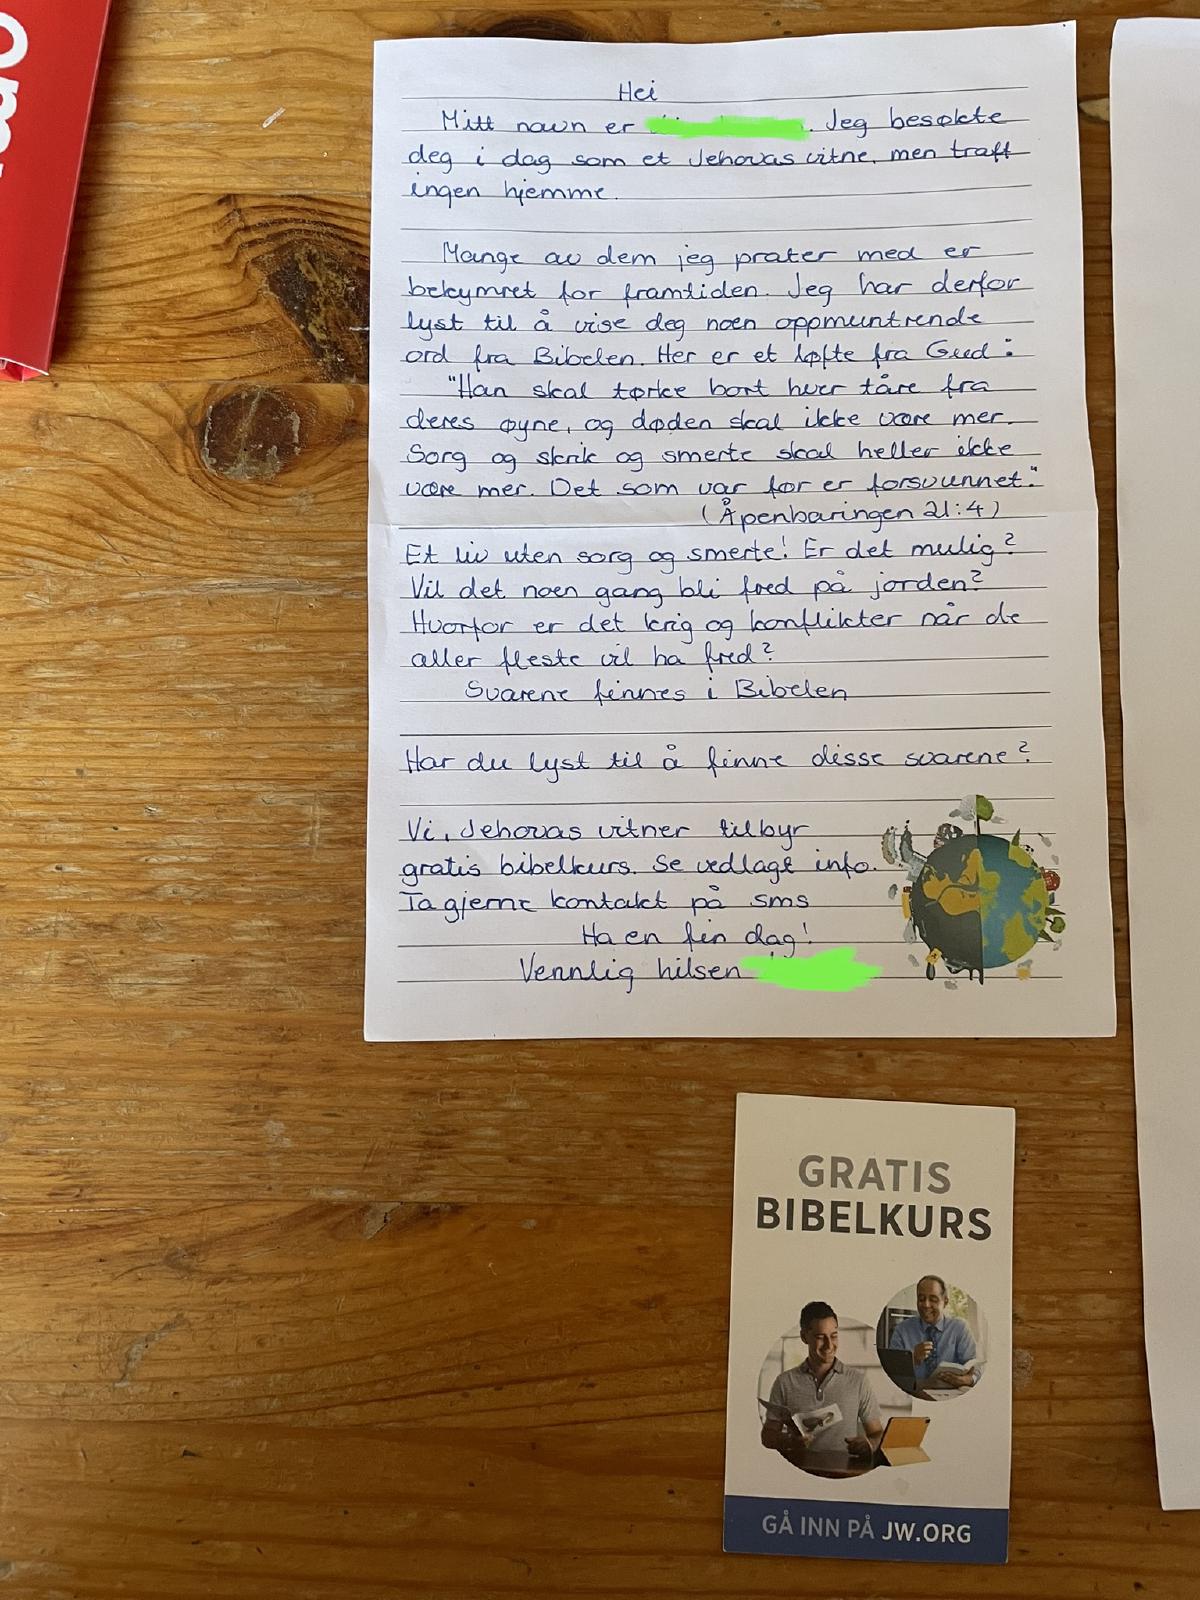 Hei
Mitt navn er . Jeg besøkte
deg i dag som et Jehovas vitne, men traff
ingen hjemme.
Mange av dem jeg prater med er
bekymret for framtiden. Jeg har derfor
lyst til å vise deg noen oppmuntrende
ord fra Bibelen. Her er et løfte fra Gud:
"Han skal tørke bort hver tåre fra
deres øyne, og døden skal ikke være mer.
Sorg og skrik og smerte skal heller ikke
være mer. Det som var før er forsvunnet."
(Åpenbaringen 21:4)
Et liv uten sorg og smerte! Er det mulig?
Vil det noen gang bli fred på jorden?
Hvorfor er det krig og konflikter når de
aller fleste vil ha fred?
Svarene finnes i Bibelen
Har du lyst til å finne disse svarene?
Vi, Jehovas vitner tilbyr
gratis bibelkurs. Se vedlagt info.
Ta gjerne kontakt på sms
Ha en fin dag!
Vennlig hilsen
GRATIS
BIBELKURS
GÅ INN PÅ JW.ORG